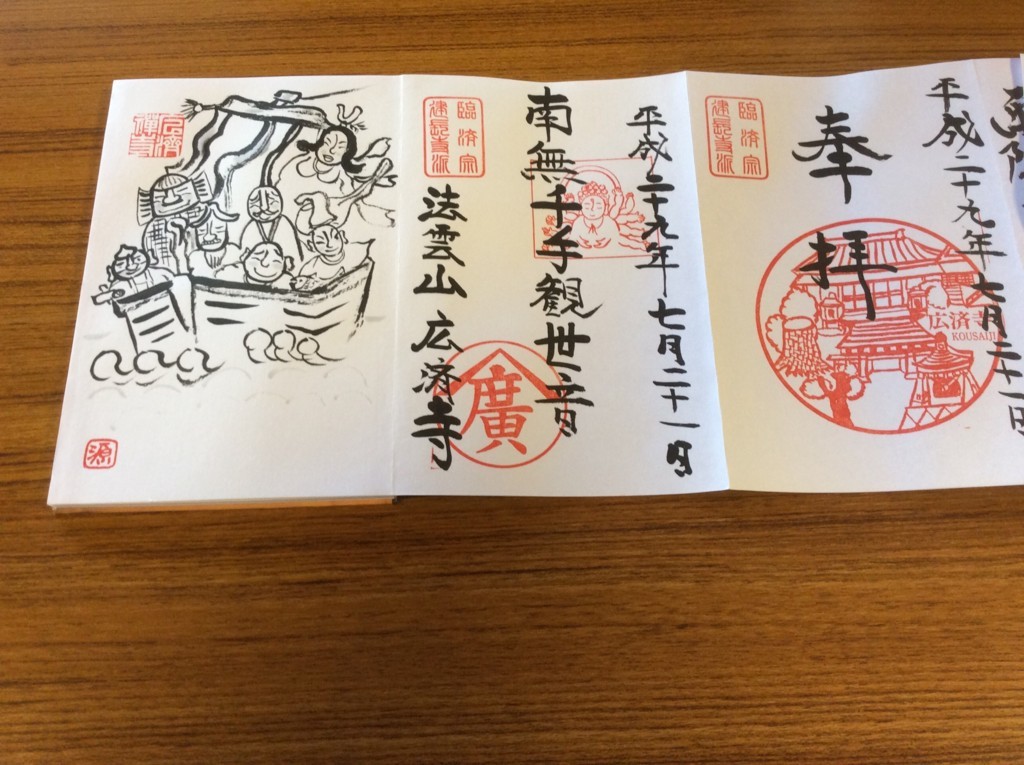 平成二十九年七月二十一日
奉拝
臨済宗
建長寺派
広済寺
KOUSAIJI
平成二十九年七月二十一日
南無千手観世音
法雲山 広済寺
臨済宗
建長寺派
廣
広濟
禪寺
源